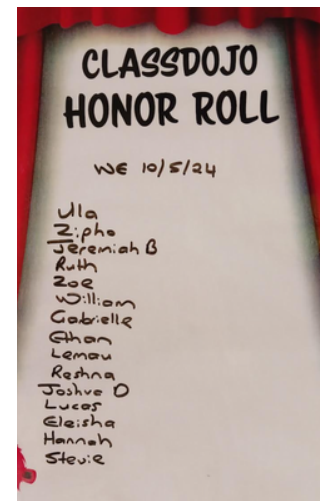 CLASSDOJO
HONOR ROLL
WE 10/5/24
Ula
Zipho
Jeremiah B
Ruth
Zoe
William
Gabrielle
Ethan
Lemau
Reshna
Joshua O
Lucas
Eleisha
Hannah
Stevie